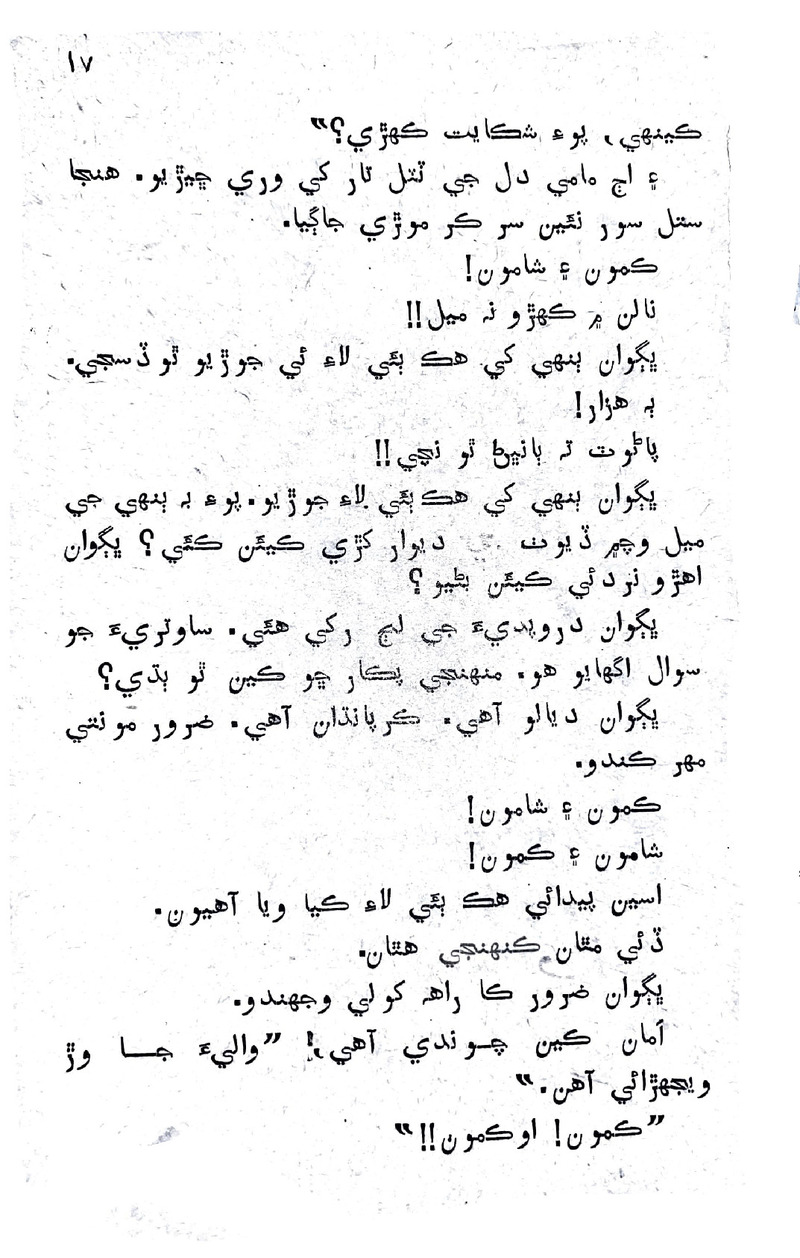 ١٧
ڪينهي، پوءِ شڪايت ڪهڙي؟“
۽ اڄ مامي دل جي ٽٽل تار کي وري ڇيڙيو. هنجا
ستل سور نئين سر ڪر موڙي جاڳيا.
ڪمون ۽ شامون!
نالن ۾ ڪهڙو نہ ميل!!
ڀڳوان ٻنهي کي هڪ ٻئي لاءِ ئي جوڙيو ٿو ڏسجي.
ٻہ هزار!
پاڻوت تہ ٻانيڻ ٿو نچي!!
ڀڳوان ٻنهي کي هڪ ٻئي لاءِ جوڙيو. پوءِ ٻہ ٻنهي جي
ميل وچ۾ ڏيوت ديوار کڙي ڪيئن ڪئي؟ ڀڳوان
اهڙو نردئي ڪيئن بڻيو؟
ڀڳوان دروپديءَ جي لڄ رکي هئي. ساوتريءَ جو
سوال اگهايو هو. منهنجي پڪار ڇو ڪين ٿو ٻڌي؟
ڀڳوان ديالو آهي. ڪرپانڌان آهي. ضرور مونتي
مهر ڪندو.
ڪمون ۽ شامون!
شامون ۽ ڪمون!
اسين پيدائي هڪ ٻئي لاءِ ڪيا ويا آهيون.
ڏئي مٿان ڪنهنجي هٿان.
ڀڳوان ضرور ڪا راهہ کولي وجهندو.
اَمان ڪين چوندي آهي! ”واليءَ جا وڙ
ويجهڙائي آهن.“
”ڪمون! او ڪمون!!“